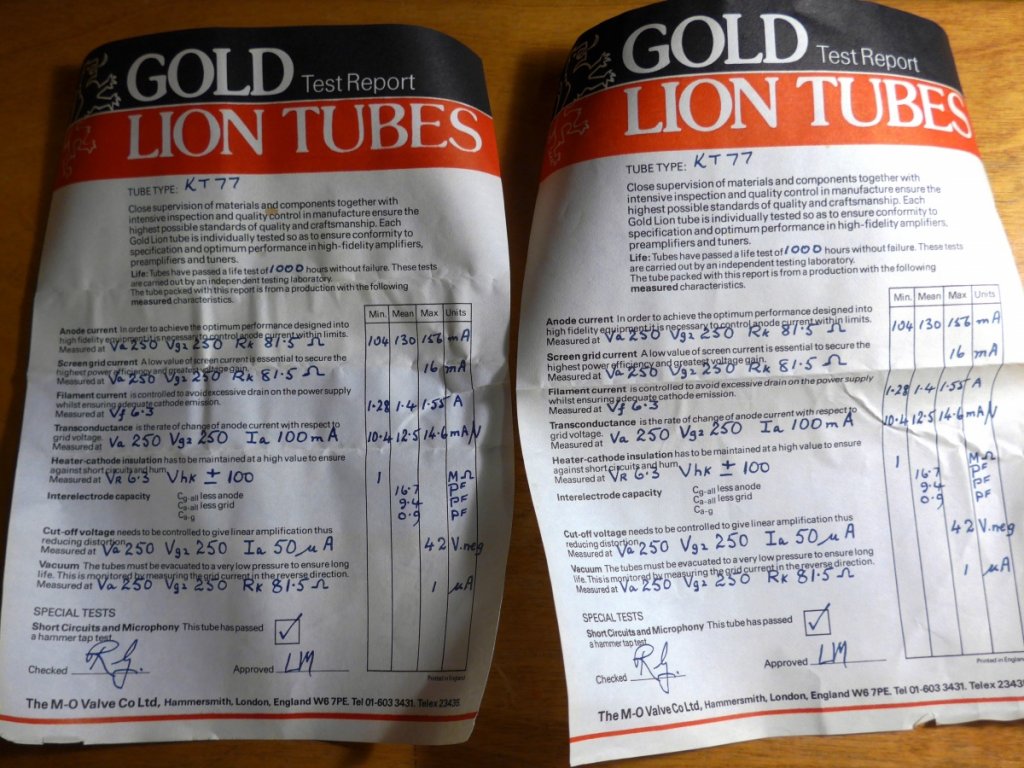 GOLD Test Report
LION TUBES
TUBE TYPE: KT77
Close supervision of materials and components together with
intensive inspection and quality control in manufacture ensure the
highest possible standards of quality and craftsmanship. Each
Gold Lion tube is individually tested so as to ensure conformity to
specification and optimum performance in high-fidelity amplifiers,
preamplifiers and tuners.
Life: Tubes have passed a life test of 1000 hours without failure. These tests
are carried out by an independent testing laboratory.
The tube packed with this report is from a production with the following
measured characteristics.
Min. Mean Max Units
Anode current In order to achieve the optimum performance designed into
high fidelity equipment it is necessary to control anode current within limits.
Measured at Va 250 Vg2 250 Rk 81.5 Ω 104 130 156 mA
Screen grid current A low value of screen current is essential to secure the
highest power efficiency and greatest voltage gain.
Measured at Va 250 Vg2 250 Rk 81.5 Ω 16 mA
Filament current is controlled to avoid excessive drain on the power supply
whilst ensuring adequate cathode emission.
Measured at Vf 6.3 1.28 1.4 1.55 A
Transconductance is the rate of change of anode current with respect to
grid voltage.
Measured at Va 250 Vg2 250 Ia 100mA 10.4 12.5 14.6 mA/V
Heater-cathode insulation has to be maintained at a high value to ensure
against short circuits and hum.
Measured at VR 6.3 Vhk ± 100 1 MΩ
Interelectrode capacity Cg-all less anode 16.7 PF
Ca-all less grid 9.4 PF
Ca-g 0.9 PF
Cut-off voltage needs to be controlled to give linear amplification thus
reducing distortion.
Measured at Va 250 Vg2 250 Ia 50 µA 42 V.neg
Vacuum The tubes must be evacuated to a very low pressure to ensure long
life. This is monitored by measuring the grid current in the reverse direction.
Measured at Va 250 Vg2 250 Rk 81.5 Ω 1 µA
SPECIAL TESTS
Short Circuits and Microphony This tube has passed ✓
a hammer tap test.
Checked RG. Approved LM
Printed in England
The M-O Valve Co Ltd, Hammersmith, London, England W6 7PE. Tel 01-603 3431. Telex 23435
GOLD Test Report
LION TUBES
TUBE TYPE: KT77
Close supervision of materials and components together with
intensive inspection and quality control in manufacture ensure the
highest possible standards of quality and craftsmanship. Each
Gold Lion tube is individually tested so as to ensure conformity to
specification and optimum performance in high-fidelity amplifiers,
preamplifiers and tuners.
Life: Tubes have passed a life test of 1000 hours without failure. These tests
are carried out by an independent testing laboratory.
The tube packed with this report is from a production with the following
measured characteristics.
Min. Mean Max Units
Anode current In order to achieve the optimum performance designed into
high fidelity equipment it is necessary to control anode current within limits.
Measured at Va 250 Vg2 250 Rk 81.5 Ω 104 130 156 mA
Screen grid current A low value of screen current is essential to secure the
highest power efficiency and greatest voltage gain.
Measured at Va 250 Vg2 250 Rk 81.5 Ω 16 mA
Filament current is controlled to avoid excessive drain on the power supply
whilst ensuring adequate cathode emission.
Measured at Vf 6.3 1.28 1.4 1.55 A
Transconductance is the rate of change of anode current with respect to
grid voltage.
Measured at Va 250 Vg2 250 Ia 100mA 10.4 12.5 14.6 mA/V
Heater-cathode insulation has to be maintained at a high value to ensure
against short circuits and hum.
Measured at VR 6.3 Vhk ± 100 1 MΩ
Interelectrode capacity Cg-all less anode 16.7 PF
Ca-all less grid 9.4 PF
Ca-g 0.9 PF
Cut-off voltage needs to be controlled to give linear amplification thus
reducing distortion.
Measured at Va 250 Vg2 250 Ia 50 µA 42 V.neg
Vacuum The tubes must be evacuated to a very low pressure to ensure long
life. This is monitored by measuring the grid current in the reverse direction.
Measured at Va 250 Vg2 250 Rk 81.5 Ω 1 µA
SPECIAL TESTS
Short Circuits and Microphony This tube has passed ✓
a hammer tap test.
Checked RG. Approved LM
Printed in England
The M-O Valve Co Ltd, Hammersmith, London, England W6 7PE. Tel 01-603 3431. Telex 23435